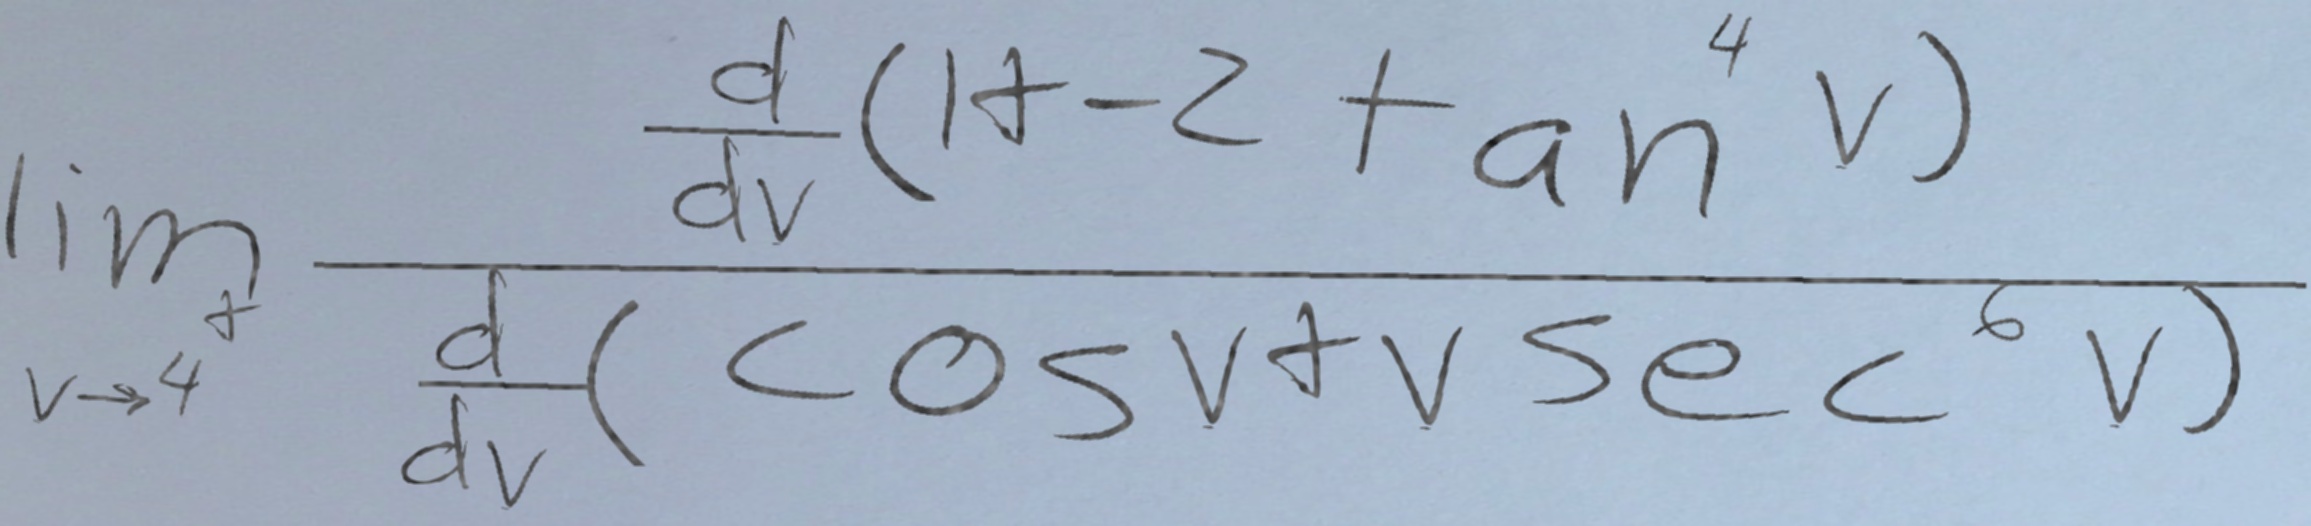 \lim_{v \to 4^+} \frac{\frac{d}{dv}(1+-2\tan^4 v)}{\frac{d}{dv}(\cos v + v \sec^6 v)}